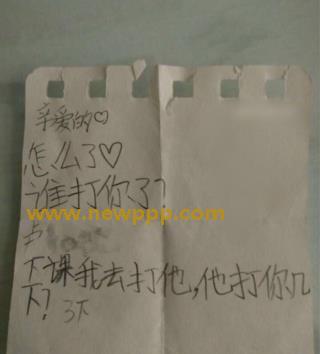 亲爱的♡
怎么了♡
谁打你了?
www.newppp.com
卢
下课我去打他,他打你几
下? 3下